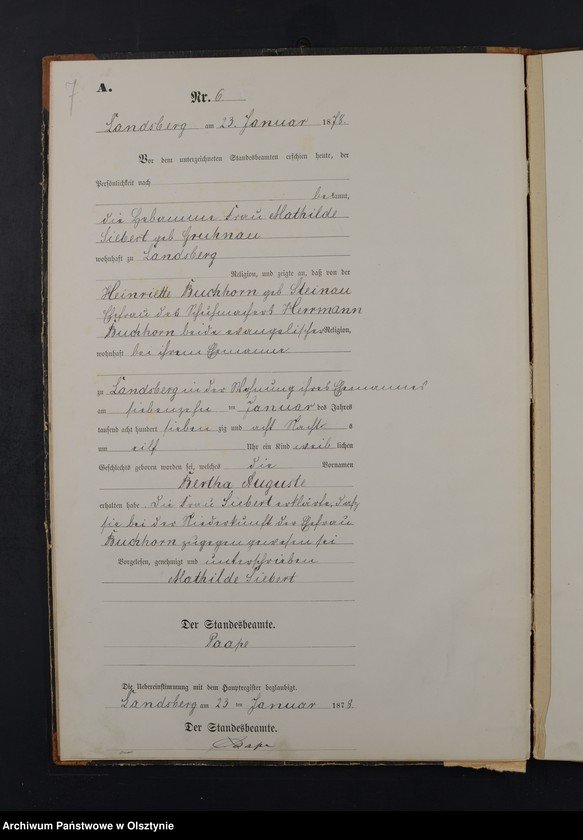 7
A.
Nr. 6
Landsberg am 23. Januar 1878.
Vor dem unterzeichneten Standesbeamten erschien heute, der
Persönlichkeit nach
bekannt,
die Hebamme Frau Mathilde
Siebert geb Gruhnau
wohnhaft zu Landsberg
Religion, und zeigte an, daß von der
Heinriette Buchhorn geb Steinau
Ehefrau des Schuhmachers Herrmann
Buchhorn beide evangelischer Religion,
wohnhaft bei ihrem Ehemanne
zu Landsberg in der Wohnung ihres Ehemannes
am siebenzehn ten Januar des Jahres
tausend acht hundert sieben zig und acht Nachts
um eilf Uhr ein Kind weib lichen
Geschlechts geboren worden sei, welches die Vornamen
Bertha Auguste
erhalten habe. Die Frau Siebert erklärte, daß
sie bei der Niederkunft der Ehefrau
Buchhorn zugegen gewesen sei
Vorgelesen, genehmigt und unterschrieben
Mathilde Siebert
Der Standesbeamte.
Paape
Die Uebereinstimmung mit dem Hauptregister beglaubigt.
Landsberg am 23 ten Januar 1878.
Der Standesbeamte.
Paape
Archiwum Państwowe w Olsztynie